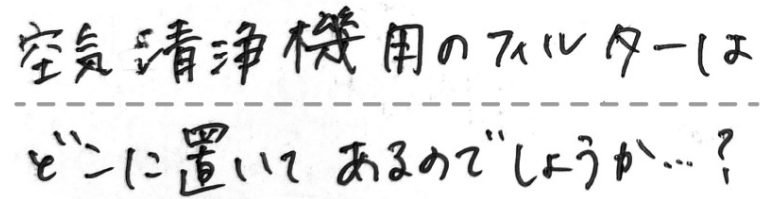 空気清浄機用のフィルターは
どこに置いてあるのでしょうか…?